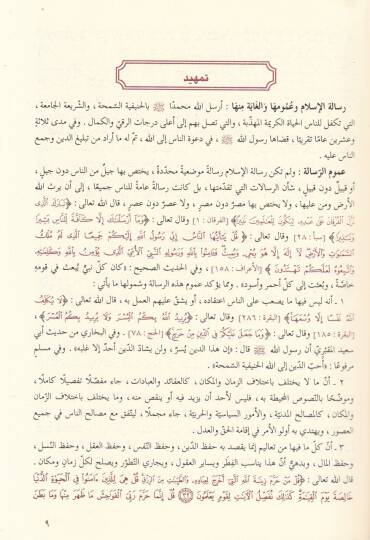 تمهيد
رسالة الإسلام وعُمُومها وَالغَايَة مِنهَا : أرسل الله محمدًا ﷺ بالحنيفية السّمحة ، والشّريعة الجامعة ،
التي تكفل للناس الحياة الكريمة المهذّبة ، والتي تصل بهم إلى أعلى درجات الرقيّ والكمال . وفي مدى ثلاثةٍ
وعشرين عامًا تقريبًا ، قضاها رسول الله ﷺ ، في دعوة الناس إلى الله ، تمّ له ما أراد من تبليغ الدين وجمع
الناس عليه .
عموم الرّسالة : ولم تكن رسالة الإسلام رسالةً موضعيةً محدّدةً ، يختص بها جيلٌ من الناس دون جيلٍ ،
أو قبيلٌ دون قبيلٍ ، شأن الرسالات التي تقدّمتها ، بل كانت رسالةً عامةً للناس جميعًا ، إلى أن يرث الله
الأرض ومن عليها ، ولا يختص بها مصرٌ دون مصرٍ ، ولا عصرٌ دون عصرٍ ، قال الله تعالى : ﴿تَبَارَكَ الَّذِي
نَزَّلَ الْفُرْقَانَ عَلَى عَبْدِهِ لِيَكُونَ لِلْعَالَمِينَ نَذِيرًا﴾ [الفرقان : ١] وقال تعالى : ﴿وَمَا أَرْسَلْنَاكَ إِلَّا كَافَّةً لِلنَّاسِ بَشِيرًا
وَنَذِيرًا﴾ [سبأ : ٢٨] وقال تعالى : ﴿قُلْ يَا أَيُّهَا النَّاسُ إِنِّي رَسُولُ اللَّهِ إِلَيْكُمْ جَمِيعًا الَّذِي لَهُ مُلْكُ
السَّمَاوَاتِ وَالْأَرْضِ لَا إِلَهَ إِلَّا هُوَ يُحْيِي وَيُمِيتُ فَآمِنُوا بِاللَّهِ وَرَسُولِهِ النَّبِيِّ الْأُمِّيِّ الَّذِي يُؤْمِنُ بِاللَّهِ وَكَلِمَاتِهِ
وَاتَّبِعُوهُ لَعَلَّكُمْ تَهْتَدُونَ﴾ [الأعراف : ١٥٨] ، وفي الحديث الصحيح : «كان كلّ نبيٍّ يُبعث في قومه
خاصّةً ، وبُعثت إلى كلّ أحمر وأسود» . ومما يؤكد عموم هذه الرسالة وشمولها ما يأتي :
١ . أنه ليس فيها ما يصعب على الناس اعتقاده ، أو يشقّ عليهم العمل به ، قال الله تعالى : ﴿لَا يُكَلِّفُ
اللَّهُ نَفْسًا إِلَّا وُسْعَهَا﴾ [البقرة : ٢٨٦] وقال تعالى : ﴿يُرِيدُ اللَّهُ بِكُمُ الْيُسْرَ وَلَا يُرِيدُ بِكُمُ الْعُسْرَ﴾
[البقرة : ١٨٥] وقال تعالى : ﴿وَمَا جَعَلَ عَلَيْكُمْ فِي الدِّينِ مِنْ حَرَجٍ﴾ [الحج : ٧٨] . وفي البخاري من حديث أبي
سعيد المقبُريّ أن رسول الله ﷺ قال : «إن هذا الدين يُسرٌ ، ولن يشادّ الدّين أحدٌ إلا غلبه» . وفي مسلمٍ
مرفوعًا : «أحبّ الدّين إلى الله الحنيفية السّمحة» .
٢ . أنّ ما لا يختلف باختلاف الزمان والمكان ، كالعقائد والعبادات ، جاء مفصّلًا تفصيلًا كاملًا ،
وموضّحًا بالنّصوص المحيطة به ، فليس لأحد أن يزيد فيه أو ينقص منه ، وما يختلف باختلاف الزمان
والمكان ، كالمصالح المدنيّة ، والأمور السياسيّة والحربيّة ، جاء مجملًا ، ليتّفق مع مصالح الناس في جميع
العصور ، ويهتدي به أولو الأمر في إقامة الحقّ والعدل .
٣ . أنّ كلّ ما فيها من تعاليم إنما يقصد به حفظ الدّين ، وحفظ النّفس ، وحفظ العقل ، وحفظ النّسل ،
وحفظ المال ، وبدهيٌّ أنّ هذا يناسب الفِطَر ويساير العقول ، ويجاري التّطوّر ويصلح لكلّ زمانٍ ومكانٍ .
قال الله تعالى : ﴿قُلْ مَنْ حَرَّمَ زِينَةَ اللَّهِ الَّتِي أَخْرَجَ لِعِبَادِهِ وَالطَّيِّبَاتِ مِنَ الرِّزْقِ قُلْ هِيَ لِلَّذِينَ آمَنُوا فِي الْحَيَاةِ الدُّنْيَا
خَالِصَةً يَوْمَ الْقِيَامَةِ كَذَلِكَ نُفَصِّلُ الْآيَاتِ لِقَوْمٍ يَعْلَمُونَ ۝٣٢ قُلْ إِنَّمَا حَرَّمَ رَبِّيَ الْفَوَاحِشَ مَا ظَهَرَ مِنْهَا وَمَا بَطَنَ
٩